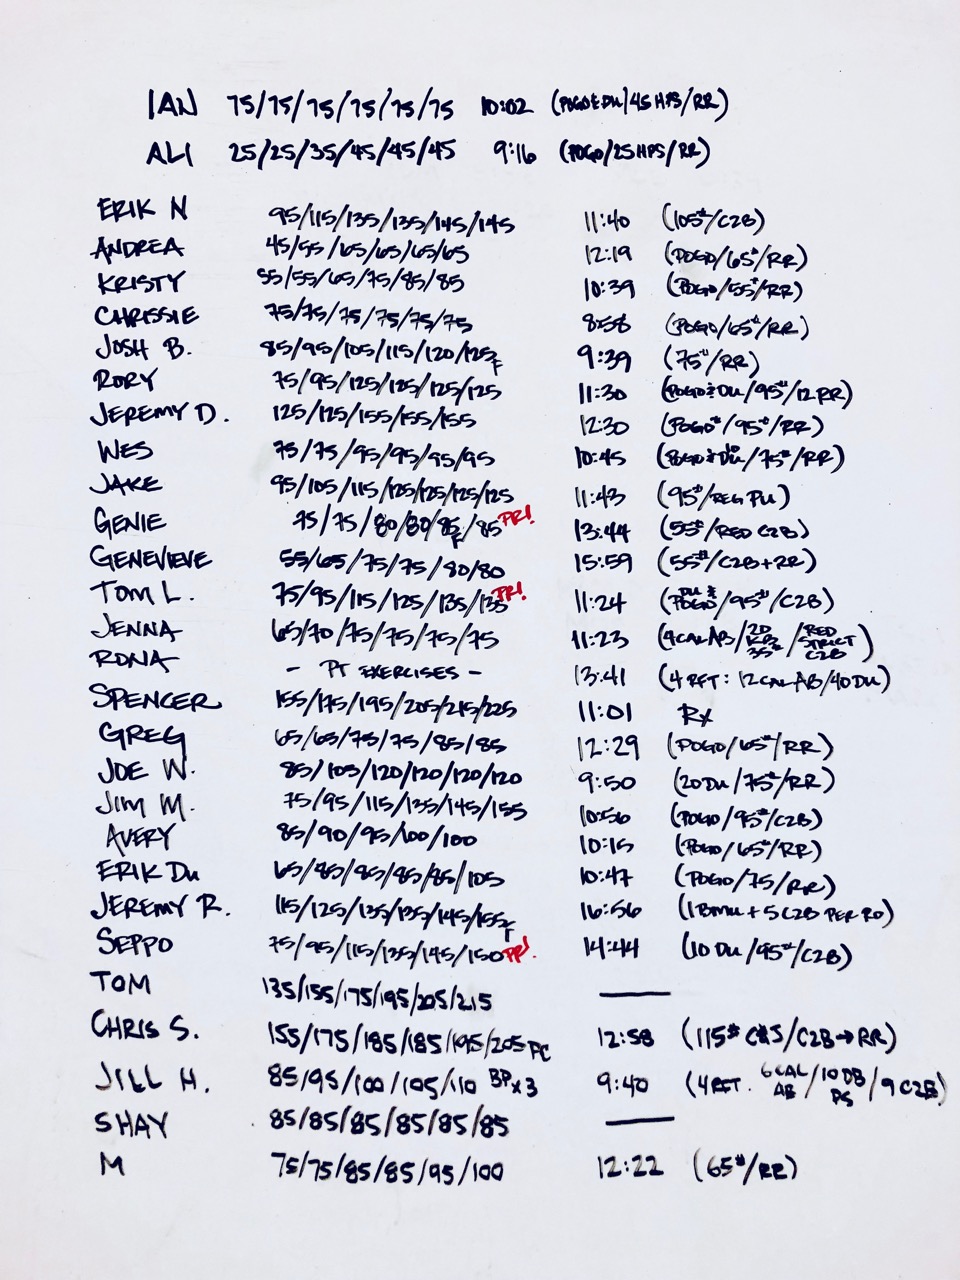 IAN 75/75/75/75/75/75 10:02 (POGO & DU/45 HPS/RR)
ALI 25/25/35/45/45/45 9:16 (POGO/25 HPS/RR)
ERIK N 95/115/135/135/145/145 11:40 (105#/C2B)
ANDREA 45/55/65/65/65/65 12:19 (POGO/65#/RR)
KRISTY 55/55/65/75/85/85 10:39 (POGO/55#/RR)
CHRISSIE 75/75/75/75/75/75 8:58 (POGO/65#/RR)
JOSH B. 85/95/105/115/120/125F 9:39 (75#/RR)
RORY 75/95/125/125/125/125 11:30 (POGO & DU/95#/12 RR)
JEREMY D. 125/125/155/155/155 12:30 (POGO/95#/RR)
WES 75/75/95/95/95/95 10:45 (POGO & DU/75#/RR)
JAKE 95/105/115/125/125/125/125 11:43 (95#/REG PU)
GENIE 75/75/80/80/85F/85 PR! 13:44 (55#/RED C2B)
GENEVIEVE 55/65/75/75/80/80 15:59 (55#/C2B+RR)
TOM L. 75/95/115/125/135/135 PR! 11:24 (DU & POGO/95#/C2B)
JENNA 65/70/75/75/75/75 11:23 (9 CAL AB/20 35#/RED STRICT C2B)
RONA - PT EXERCISES - 13:41 (4 RFT: 12 CAL AB/40 DU)
SPENCER 155/175/195/205/215/225 11:01 Rx
GREG 65/65/75/75/85/85 12:29 (POGO/65#/RR)
JOE W. 85/105/120/120/120/120 9:50 (20 DU/75#/RR)
JIM M. 75/95/115/135/145/155 10:56 (POGO/95#/C2B)
AVERY 85/90/95/100/100 10:15 (POGO/65#/RR)
ERIK DU 65/85/95/85/85/105 10:47 (POGO/75/RR)
JEREMY R. 115/125/135/135/145/155F 16:56 (1 BMU + 5 C2B PER RD)
SEPPO 75/95/115/135/145/150 PR! 14:44 (10 DU/95#/C2B)
TOM 135/155/175/195/205/215 —
CHRIS S. 155/175/185/185/195/205 PC 12:58 (115# C&J/C2B→RR)
JILL H. 85/95/100/105/110 BP x 3 9:40 (4 RFT. 6 CAL AB/10 DB PS/9 C2B)
SHAY 85/85/85/85/85/85 —
M 75/75/85/85/95/100 12:22 (65#/RR)